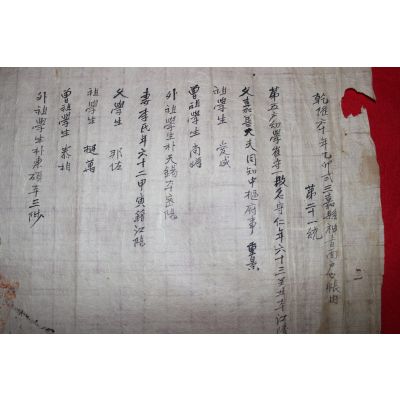 乾隆六十年乙卯式三嘉縣祖 面 戶帳內
第二十一統
第五戶幼學崔守一改名守仁年六十三 本江陵
父嘉善大夫同知中樞府事 重景
祖學生 成
曾祖學生 尚
外祖學生朴天錫本密陽
妻李氏年六十二甲寅籍江陰
父學生 邦佐
祖學生 挺萬
曾祖學生 泰
外祖學生朴東碩本三陟